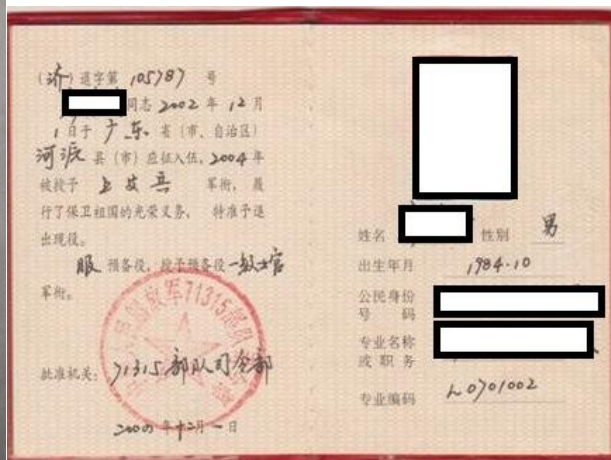 (济) 退字第 105787 号
同志 2002 年 12 月
1 日于 广东 省 (市、自治区)
河源 县 (市) 应征入伍, 2004 年
被授予 上等兵 军衔, 履
行了保卫祖国的光荣义务, 特准予退
出现役。
服 预备役, 授予预备役 一级士官
军衔。
71315部队
批准机关: 71315部队司令部
年十二月一日
姓名 性别 男
出生年月 1984.10
公民身份
号 码
专业名称
或 职 务
专业编码 L0701002